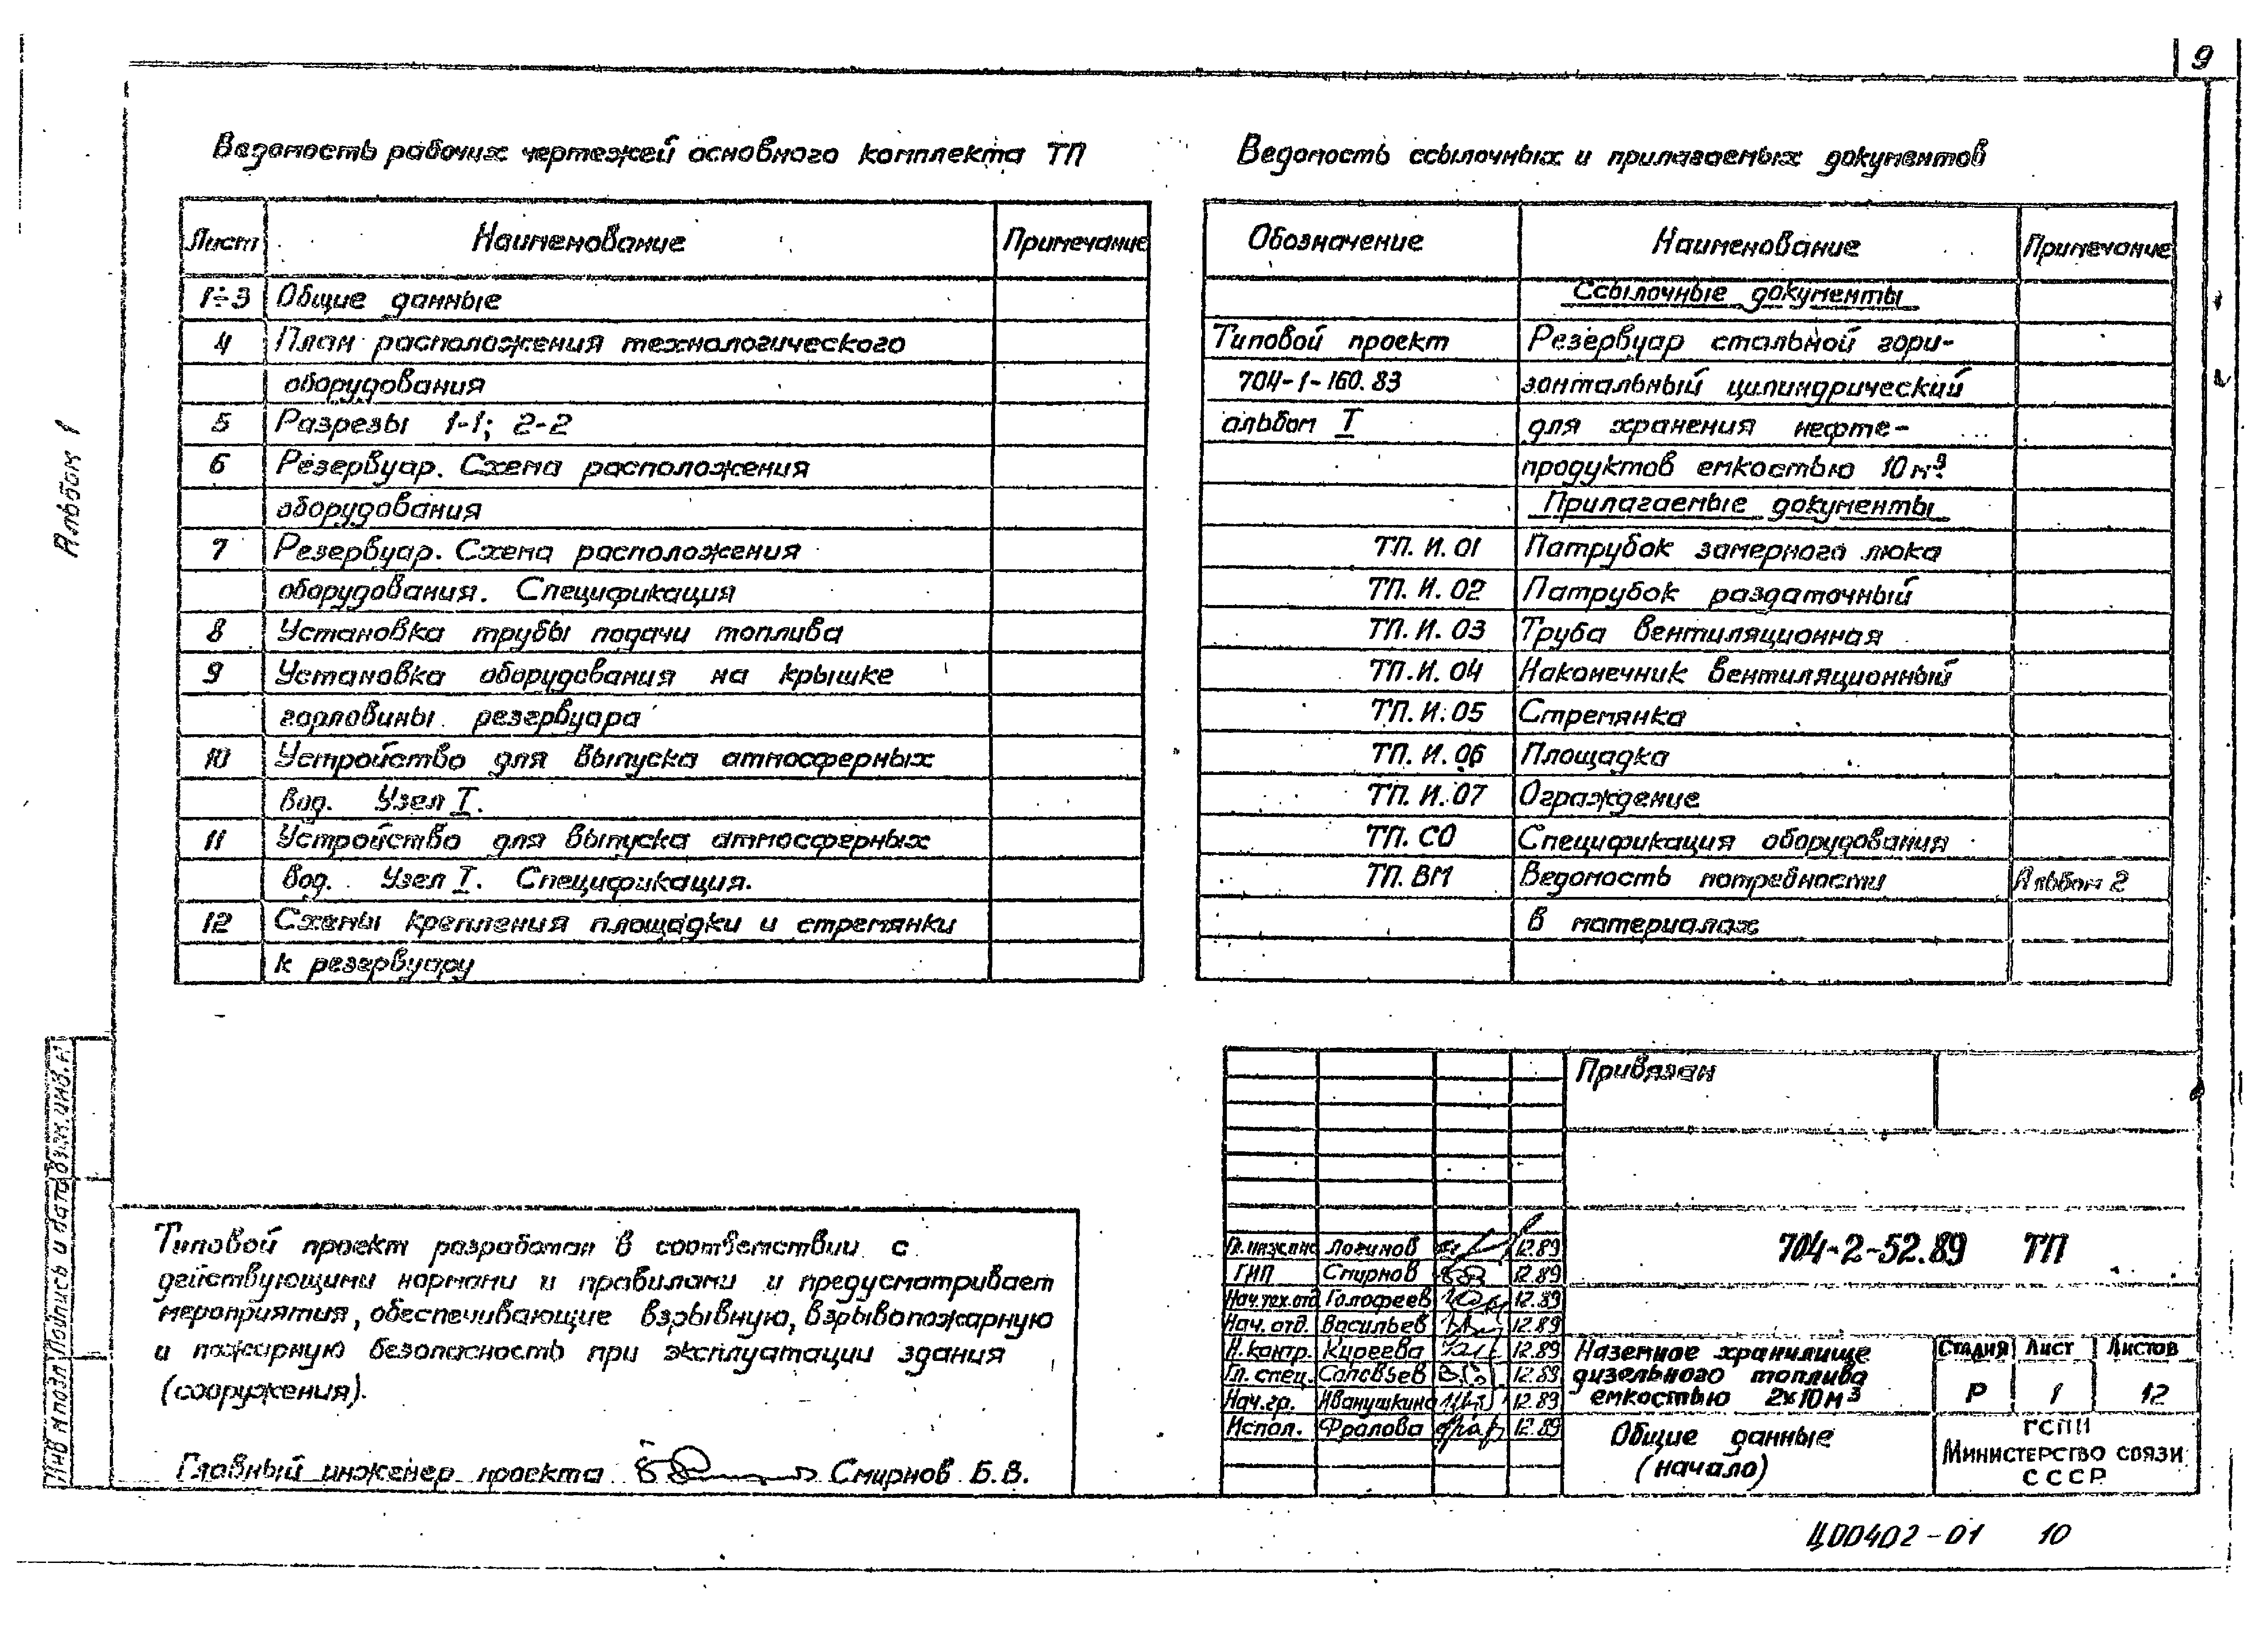 9
Альбом 1
Ведомость рабочих чертежей основного комплекта ТП
Лист Наименование Примечание
1÷3 Общие данные
4 План расположения технологического
оборудования
5 Разрезы 1-1; 2-2
6 Резервуар. Схема расположения
оборудования
7 Резервуар. Схема расположения
оборудования. Спецификация
8 Установка трубы подачи топлива
9 Установка оборудования на крышке
горловины резервуара
10 Устройство для выпуска атмосферных
вод. Узел I.
11 Устройство для выпуска атмосферных
вод. Узел I. Спецификация.
12 Схемы крепления площадки и стремянки
к резервуару
Ведомость ссылочных и прилагаемых документов
Обозначение Наименование Примечание
Ссылочные документы
Типовой проект Резервуар стальной гори-
704-1-160.83 зонтальный цилиндрический
альбом I для хранения нефте-
продуктов емкостью 10 м³
Прилагаемые документы
ТП. И. 01 Патрубок замерного люка
ТП. И. 02 Патрубок раздаточный
ТП. И. 03 Труба вентиляционная
ТП. И. 04 Наконечник вентиляционный
ТП. И. 05 Стремянка
ТП. И. 06 Площадка
ТП. И. 07 Ограждение
ТП. СО Спецификация оборудования
ТП. ВМ Ведомость потребности Альбом 2
в материалах
Типовой проект разработан в соответствии с
действующими нормами и правилами и предусматривает
мероприятия, обеспечивающие взрывную, взрывопожарную
и пожарную безопасность при эксплуатации здания
(сооружения).
Главный инженер проекта Смирнов Б. В.
Инв № подл Подпись и дата Взам. инв. №
Привязан
704-2-52.89 ТП
Логинов 12.89
ГИП Смирнов 12.89
Нач. тех. отд Голофеев 12.89
Нач. отд. Васильев 12.89
Н. контр. Киреева 12.89
Гл. спец. Соловьев 12.89
Нач. гр. Иванушкина 12.89
Испол. Фролова 12.89
Наземное хранилище
дизельного топлива
емкостью 2х10 м³
Стадия Лист Листов
Р 1 12
Общие данные
(начало)
ГСПИ
Министерство связи
СССР
Ц00402-01 10